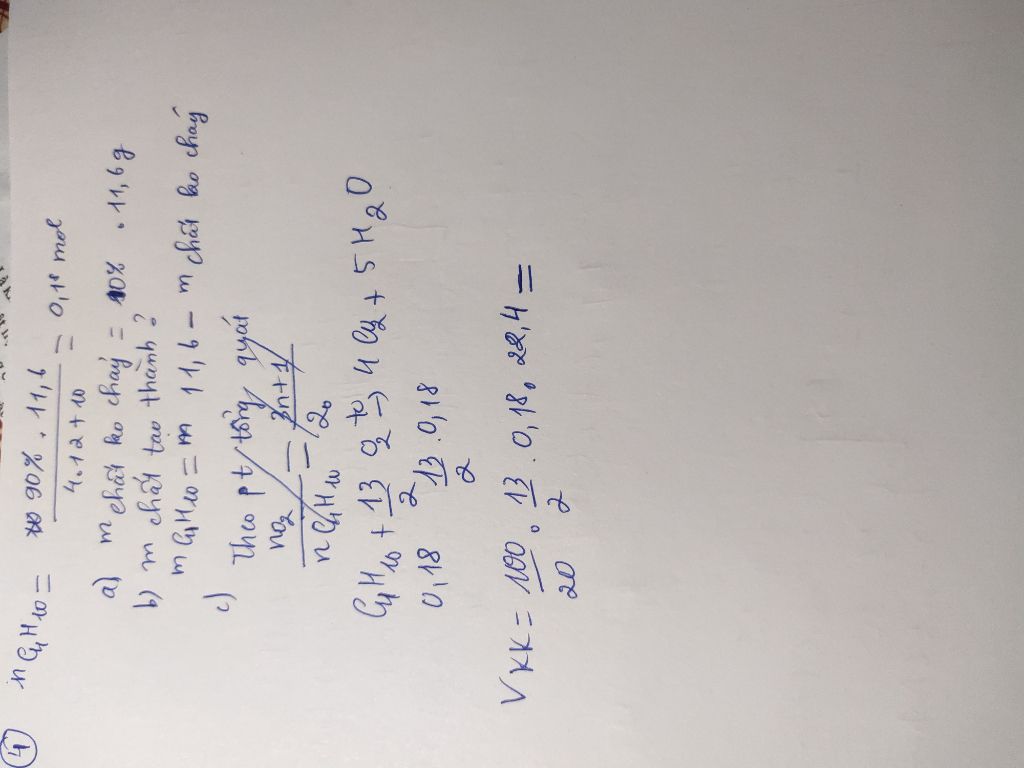 ④ nC4H10 = 90% . 11,6 / 4.12 + 10 = 0,18 mol
a) m chất ko cháy = 10% . 11,6 g
b) m chất tạo thành ?
mC4H10 = m 11,6 - m chất ko cháy
c) Theo pt tổng quát
nO2 / nC4H10 = 3n+1 / 2
C4H10 + 13/2 O2 to→ 4CO2 + 5H2O
0,18 13/2 . 0,18
VKK = 100/20 . 13/2 . 0,18 . 22,4 =